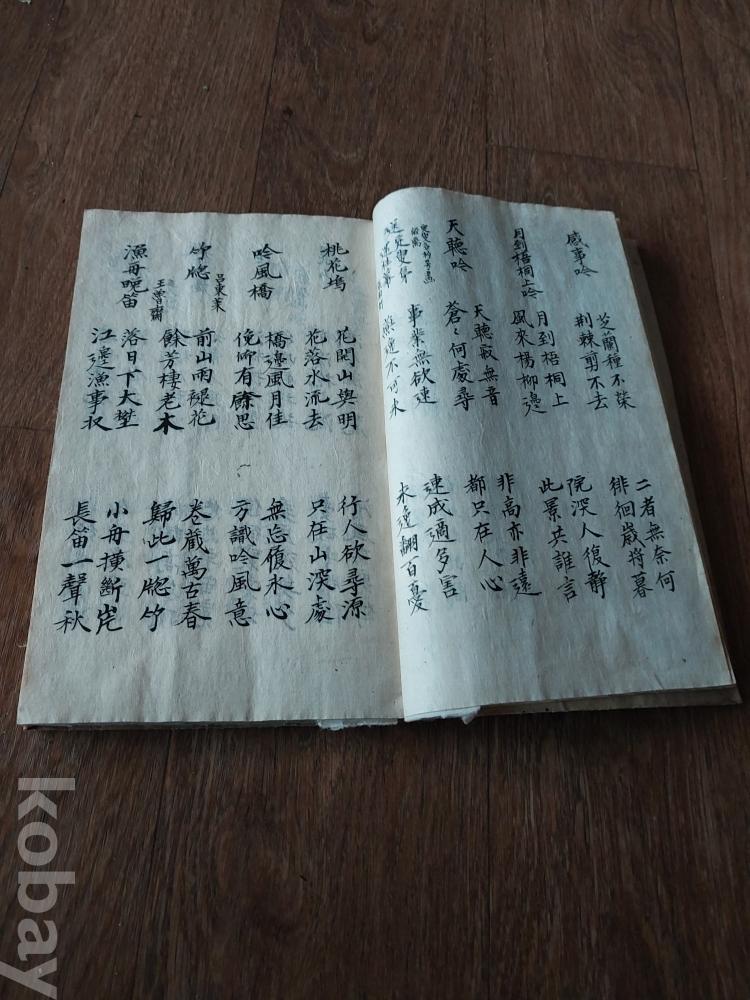 感事吟
芝蘭種不榮
荆棘剪不去
二者無奈何
徘徊歲将暮
月到梧桐上吟
月到梧桐上
風來楊柳邊
院深人復静
此景共誰言
天聽吟
天聽寂無音
蒼〻何處尋
非高亦非遠
都只在人心
事業無欲速
速成 多害
邊不可求
求邊翻百憂
桃花塢
花開山與明
花落水流去
行人欲尋源
只在山深處
吟風橋
橋邊風月佳
俛仰有餘思
無忘履氷心
方識吟風意
竹牕
呂東萊
前山雨褪花
餘芳棲老木
卷藏萬古春
歸此一牕竹
漁舟晚笛
王魯齋
落日下大
江邊漁事収
小舟横斷岸
長笛一聲秋
kobay